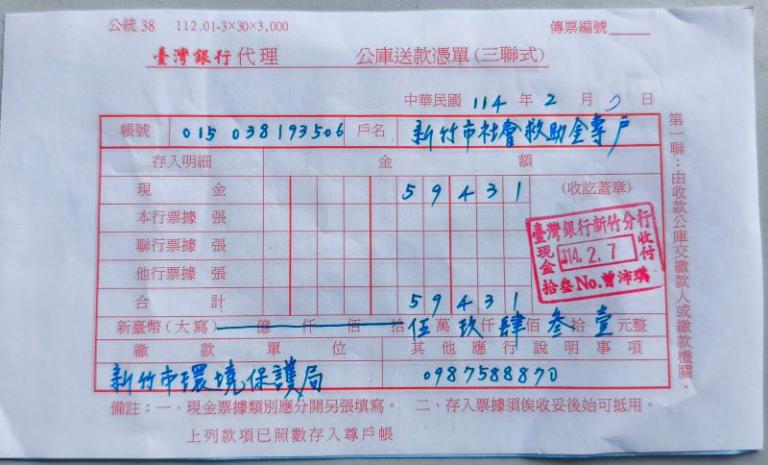 公統38 112.01-3×30×3,000 傳票編號
臺灣銀行代理 公庫送款憑單(三聯式)
中華民國 114 年 2 月 7 日
帳號 015 038193506 戶名 新竹市社會救助金專戶
存入明細 金額
現金 59431 (收訖蓋章)
本行票據 張
聯行票據 張
他行票據 張
合計 59431
新臺幣(大寫) 億 仟 佰 拾 伍 萬 玖 仟 肆 佰 叁 拾 壹 元整
繳款單位 其他應行說明事項
新竹市環境保護局 0987588870
備註:一、現金票據類別應分開另張填寫。 二、存入票據須俟收妥後始可抵用。
上列款項已照數存入尊戶帳
第一聯:由收款公庫交繳款人或繳款機關。
臺灣銀行新竹分行
現金 114.2.7 收付
拾叁No.曾沛琪